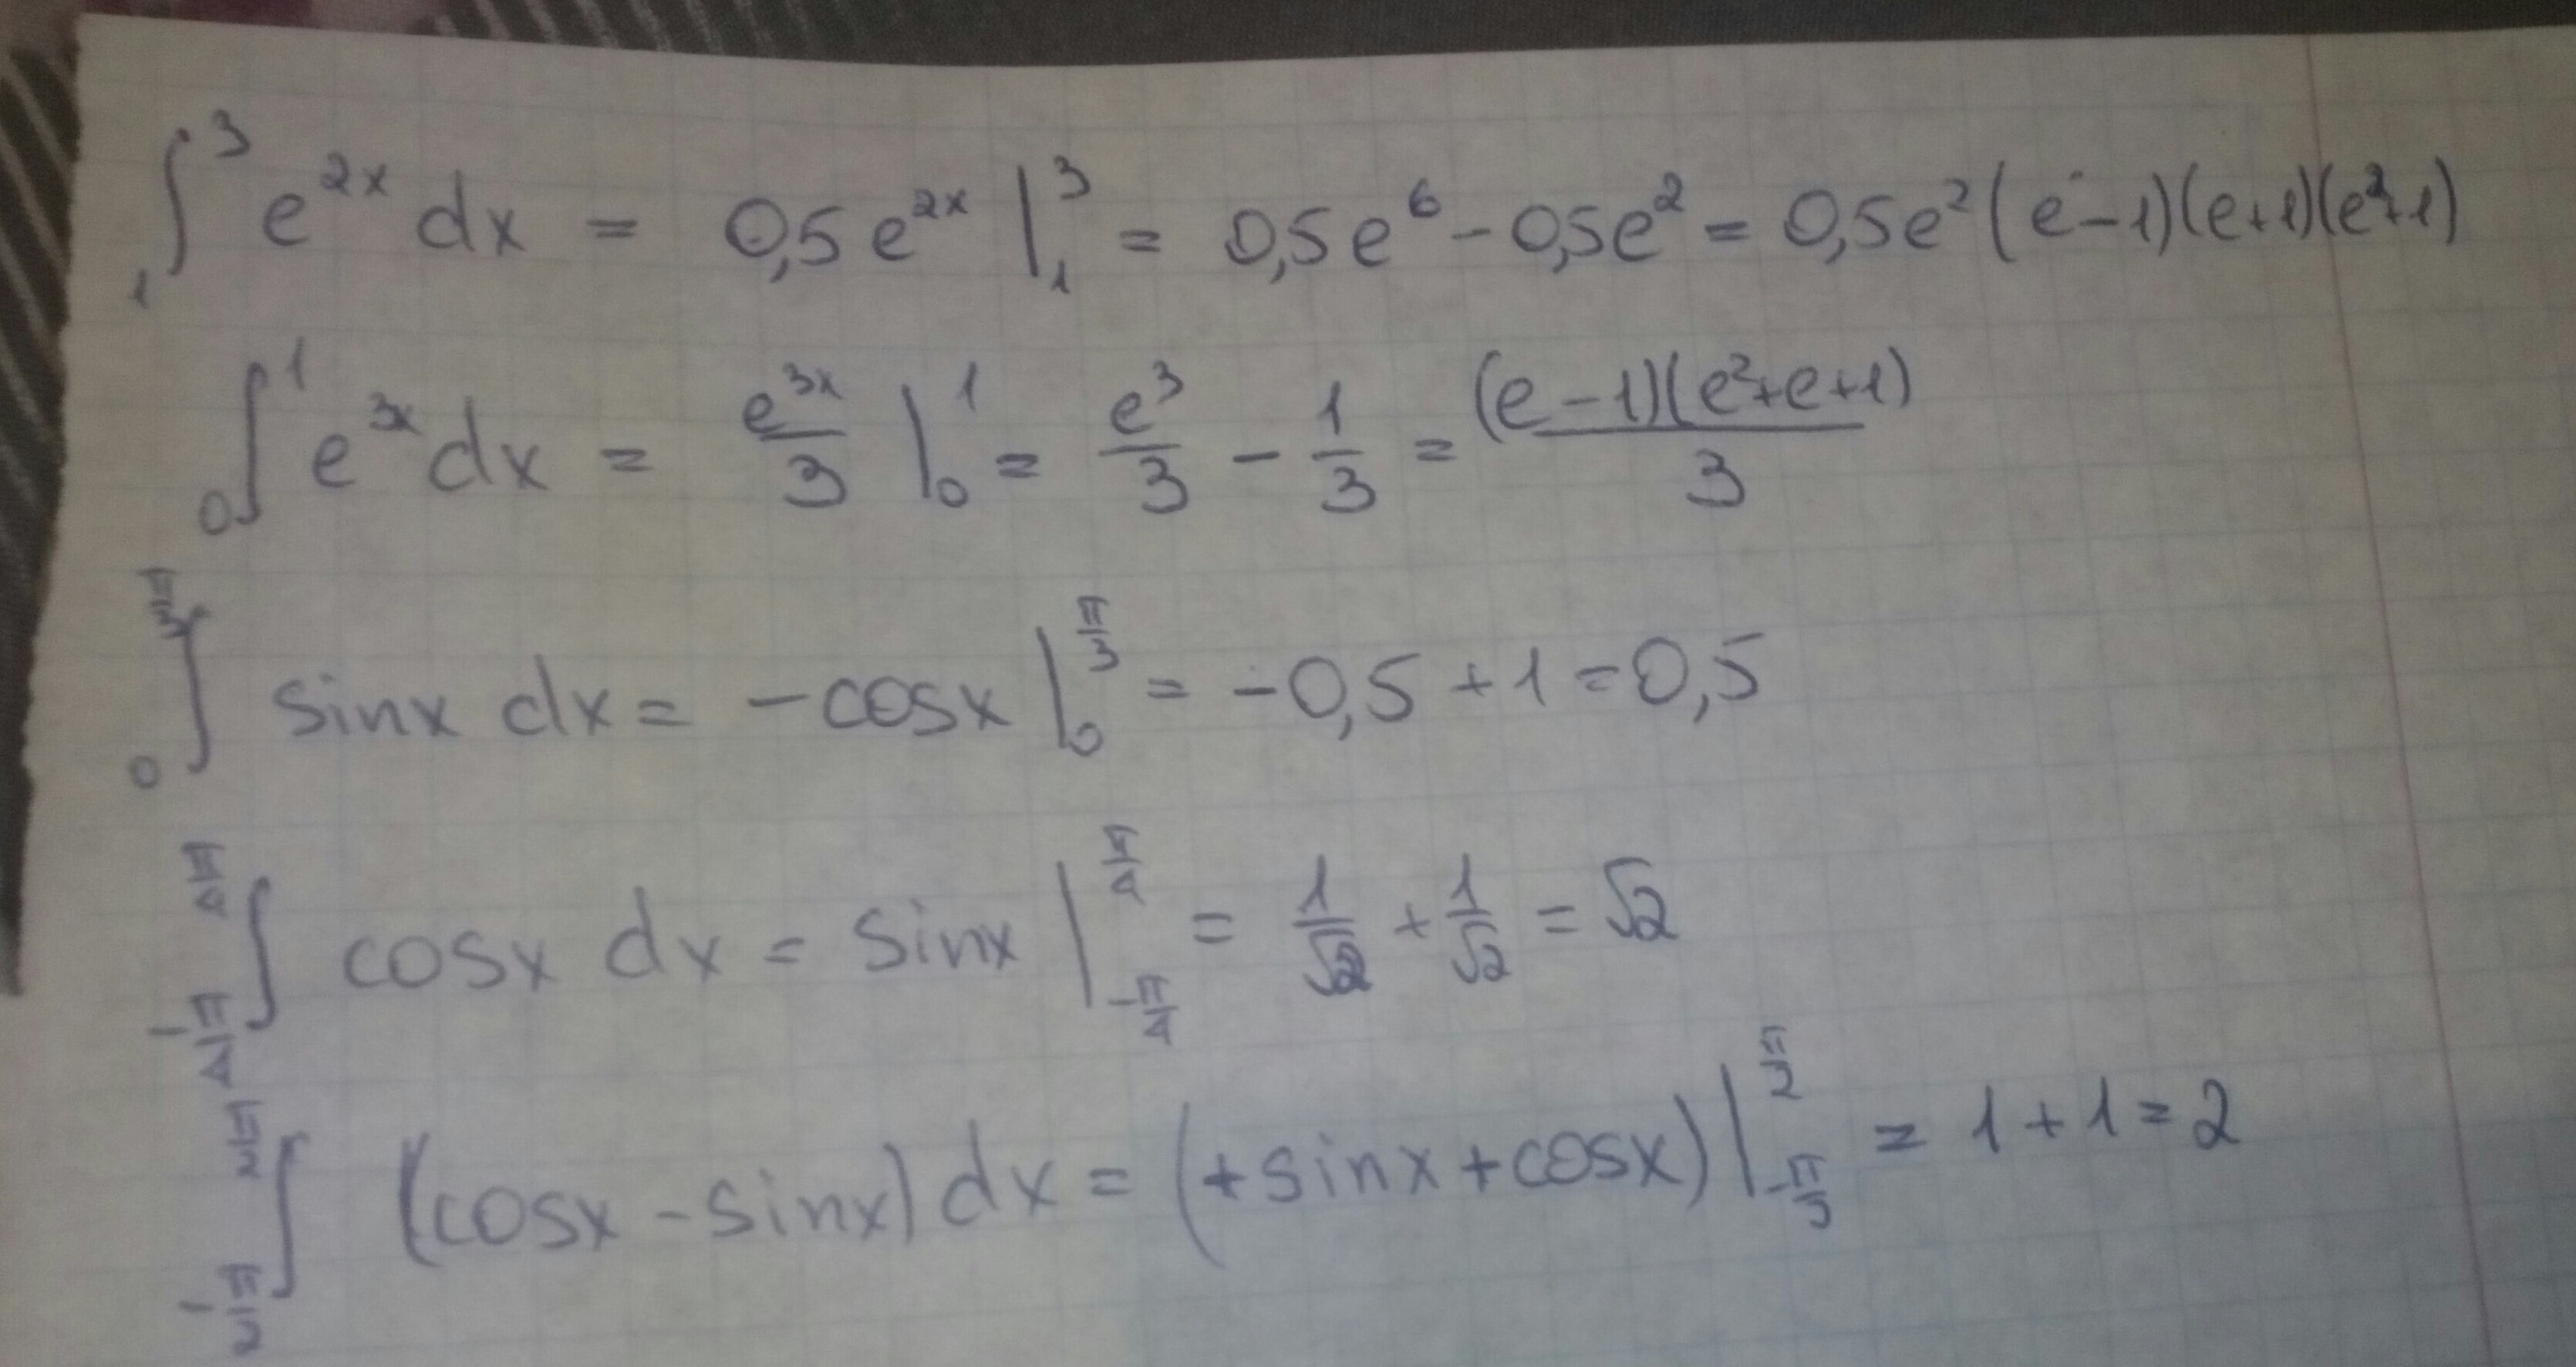 ∫₁³ e^{2x} dx = 0,5 e^{2x} |₁³ = 0,5e⁶ - 0,5e² = 0,5e² (e-1)(e+1)(e²+1)
∫₀¹ e^{3x} dx = e^{3x}/3 |₀¹ = e³/3 - 1/3 = (e-1)(e²+e+1)/3
∫₀^{π/3} sinx dx = -cosx |₀^{π/3} = -0,5 + 1 = 0,5
∫_{-π/4}^{π/4} cosx dx = sinx |_{-π/4}^{π/4} = 1/√2 + 1/√2 = √2
∫_{-π/2}^{π/2} (cosx - sinx) dx = (+sinx + cosx) |_{-π/2}^{π/2} = 1 + 1 = 2